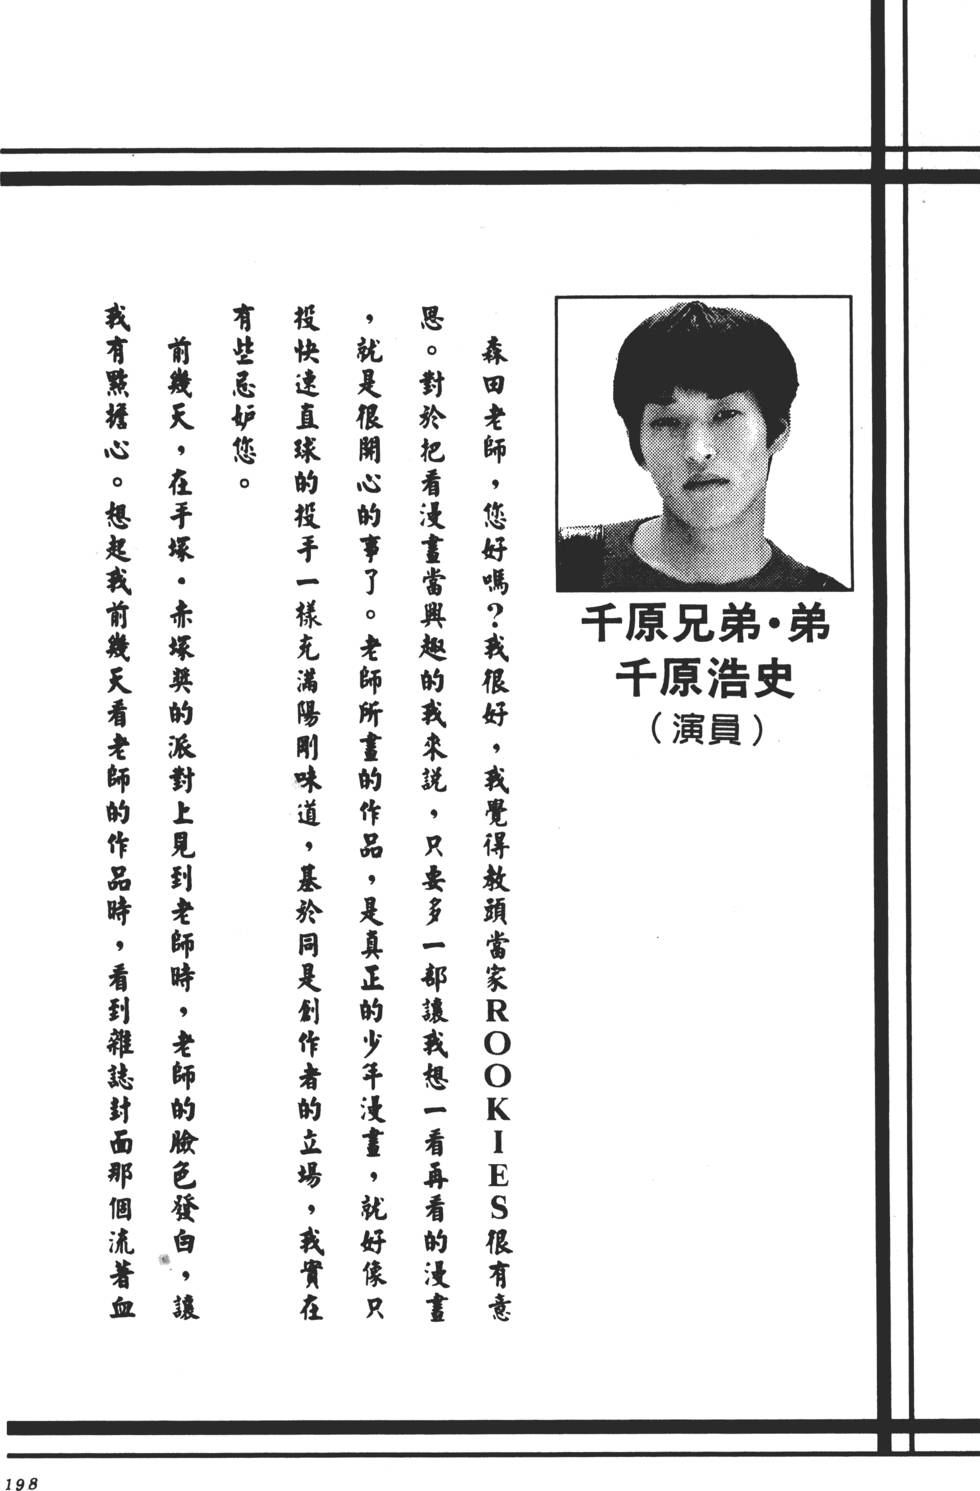 千原兄弟・弟
千原浩史
（演員）
森田老師，您好嗎？我很好，我覺得教頭當家ROOKIES很有意
思。對於把看漫畫當興趣的我來說，只要多一部讓我想一看再看的漫畫
，就是很開心的事了。老師所畫的作品，是真正的少年漫畫，就好像只
投快速直球的投手一樣充滿陽剛味道，基於同是創作者的立場，我實在
有些忌妒您。
前幾天，在手塚・赤塚獎的派對上見到老師時，老師的臉色發白，讓
我有點擔心。想起我前幾天看老師的作品時，看到雜誌封面那個流著血
198